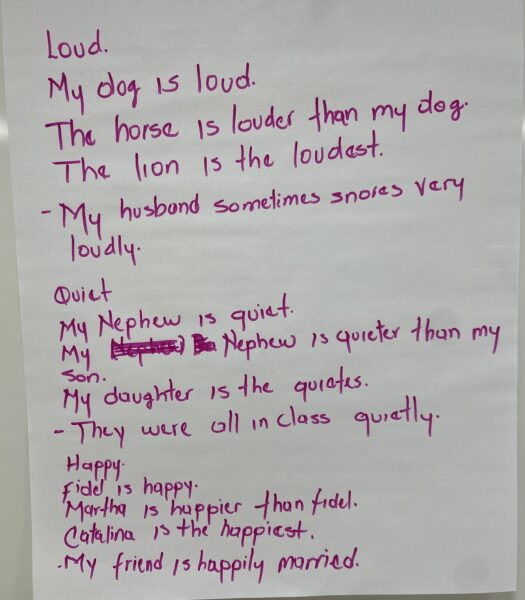 Loud.
My dog is loud.
The horse is louder than my dog.
The lion is the loudest.
- My husband sometimes snores very
loudly.
Quiet
My Nephew is quiet.
My Nephew is quieter than my
son.
My daughter is the quietes.
- They were all in class quietly.
Happy.
Fidel is happy.
Martha is happier than fidel.
Catalina is the happiest.
- My friend is happily married.